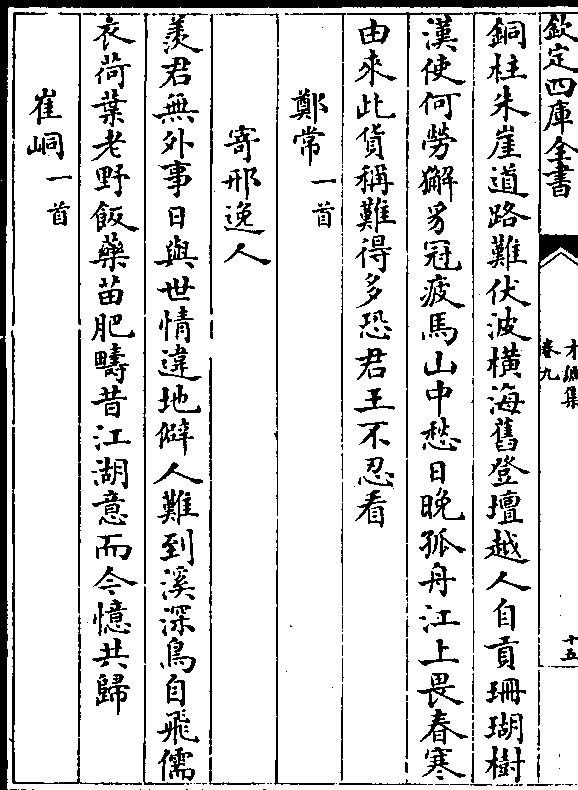 欽定四庫全書
才調集
卷九
十五
銅柱朱崖道路難伏波橫海舊登壇越人自貢珊瑚樹
漢使何勞獬豸冠疲馬山中愁日晚孤舟江上畏春寒
由來此貨稱難得多恐君王不忍看
鄭常一首
寄邢逸人
羨君無外事日與世情違地僻人難到溪深鳥自飛儒
衣荷葉老野飯藥苗肥疇昔江湖意而今憶共歸
崔峒一首